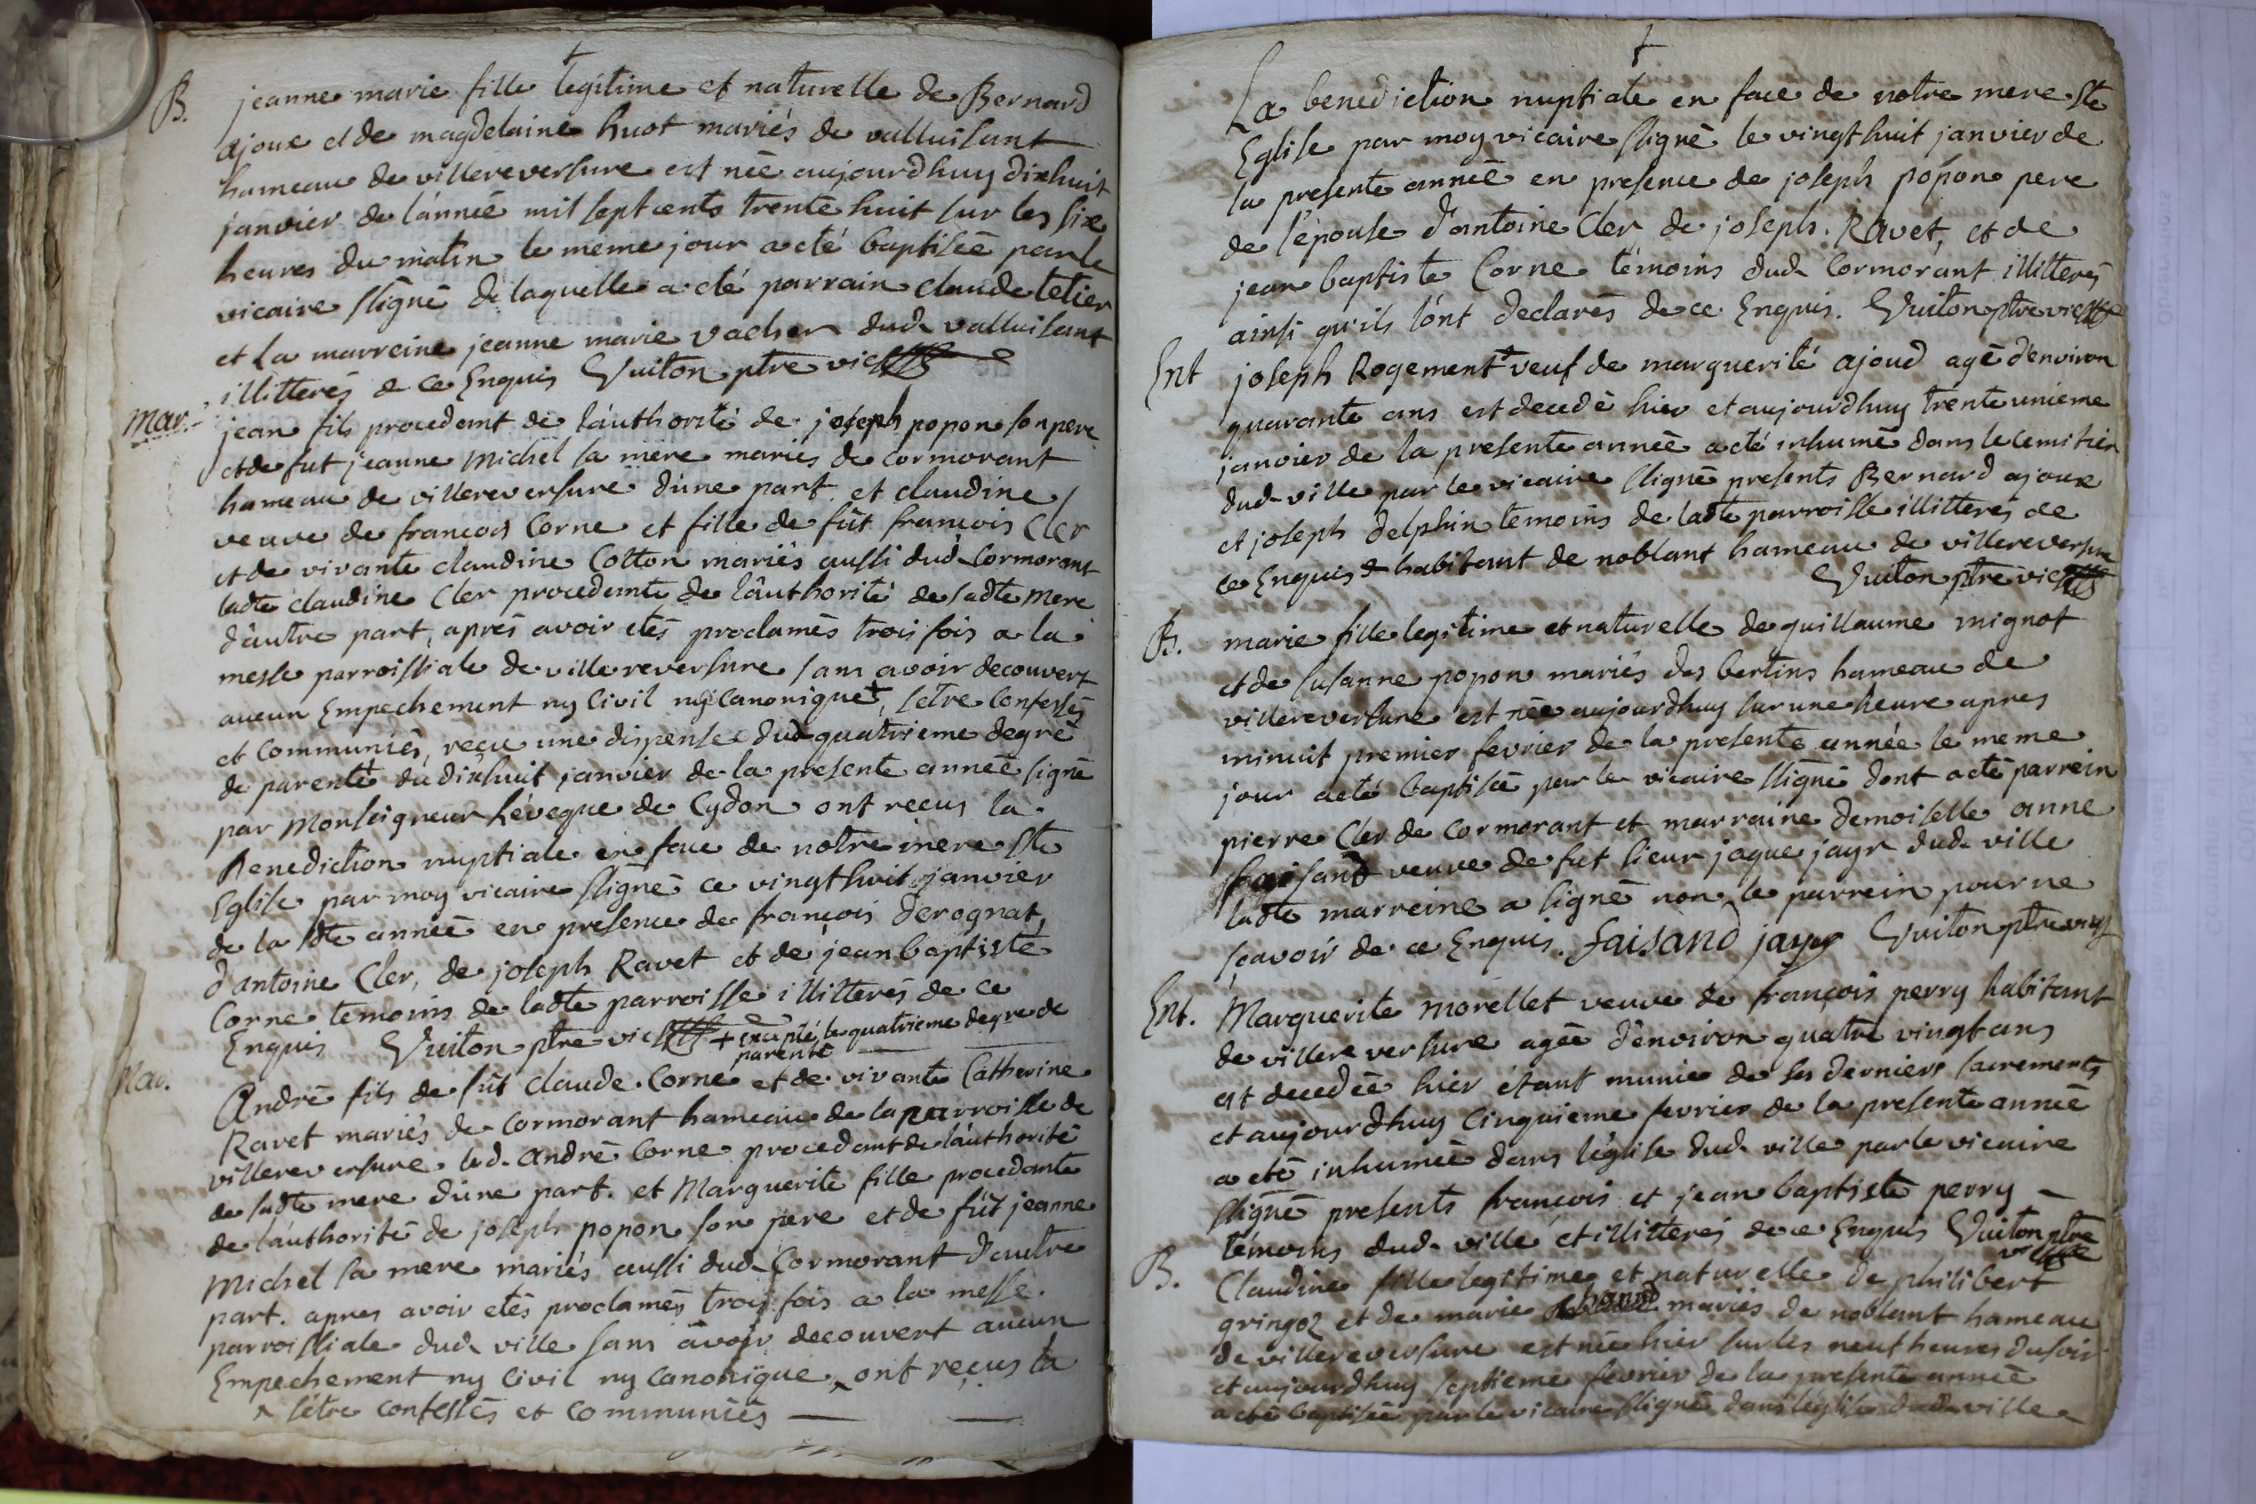 B. jeanne marie fille legitime et naturelle de Bernard
ajoux et de magdelaine huot mariés de valluisant
hameau de villereversure est née aujourdhuy dixhuit
janvier de l'année mil sept cents trente huit sur les six
heures du matin le meme jour a eté baptisée par le
vicaire ssigné de laquelle a eté parrain claude tetier
et la marreine jeanne marie vacher dud. valluisant
illitterés de ce Enquis Vuiton ptre vic
Mar. jean fils procedant de l'authorité de joseph popon son pere
et de fut jeanne Michel sa mere mariés de Cormorant
hameau de villereversure d'une part et claudine
veuve de francois Corne et fille de fût francois Cler
et de vivante claudine Cotton mariés aussi dud Cormorant
ladte claudine Cler procedante de l'authorité de sadte mere
d'autre part, aprés avoir etés proclamés trois fois a la
messe parroissiale de villereversure sans avoir decouvert
aucun Empechement ny Civil ny Canonique +, s'etre Confessés
et Communiés, reçu une dispense dud quatrieme degré
de parenté du dixhuit janvier de la presente année signé
par Monseigneur L'éveque de Cydon ont reçus la
Benediction nuptiale en face de notre mere Ste
Eglise par moy vicaire ssigné ce vingt huit janvier
de la sdte année en presence de françois derognat,
d'antoine Cler, de joseph Ravet et de jean baptiste
Corne temoins de ladte parroisse illitterés de ce
Enquis Vuiton ptre vic + excepté le quatrieme degre de
parenté
Mar. André fils de fût Claude Corne et de vivante Catherine
Ravet mariés de Cormorant hameau de la parroisse de
villereversure led. André Corne procedant de l'authorité
de sadte mere d'une part. et Marguerite fille procedante
de l'authorité de joseph popon son pere et de fût jeanne
Michel sa mere mariés aussi dud. Cormorant d'autre
part. apres avoir etés proclamés trois fois a la messe
parroissiale dud. ville sans avoir decouvert aucun
Empechement ny Civil ny Canonique ^ ont reçus la
^ s'étre confessés et communiés
La benediction nuptiale en face de notre mere Ste
Eglise par moy vicaire ssigné le vingt huit janvier de
la presente année en presence de joseph popon pere
de l'épouse d'antoine Cler de joseph Ravet, et de
jean baptiste Corne témoins dud. Cormorant illitterés
ainsi qu'ils l'ont declarés de ce Enquis. Vuiton ptre vic
Ent joseph Rogement + veuf de marguerite ajoud agé d'environ
quarante ans est decedé hier et aujourdhuy trente unieme
janvier de la presente année a eté inhumé dans le cemitier
dud. ville par le vicaire ssigné presents Bernard ajoux
et joseph delphin temoins de ladte parroisse illitterés de
ce Enquis + habitant de noblant hameau de villereversure
Vuiton ptre vic
B. marie fille legitime et naturelle de guillaume mignot
et de susanne popon mariés des bertins hameau de
villereversure est née aujourdhuy sur une heure apres
minuit premier fevrier de la presente année le meme
jour a eté baptisée par le vicaire ssigné dont a eté parrein
pierre Cler de Cormorant et marraine demoiselle anne
faisand veuve de fut sieur jaque jayr dud. ville
ladte marreine a signé non le parrein pour ne
sçavoir de ce Enquis. faisand jayr Vuiton ptre vic
Ent. Marguerite morellet veuve de françois perry habitant
de villereversure agée d'environ quatre vingt ans
est decedée hier étant munie de ses derniers sacrements
et aujourdhuy Cinquieme fevrier de la presente année
a eté inhumée dans l'église dud. ville par le vicaire
ssigné presents françois et jean baptiste perry
témoins dud. ville et illitterés de ce Enquis Vuiton ptre
vic
B. Claudine fille legitime et naturelle de philibert
gringoz et de marie mariés de noblant hameau
de villereversure est née hier sur les neuf heures du soir
et aujourdhuy septieme fevrier de la presente année
a eté baptisée par le vicaire ssigné dans l'église dud. ville